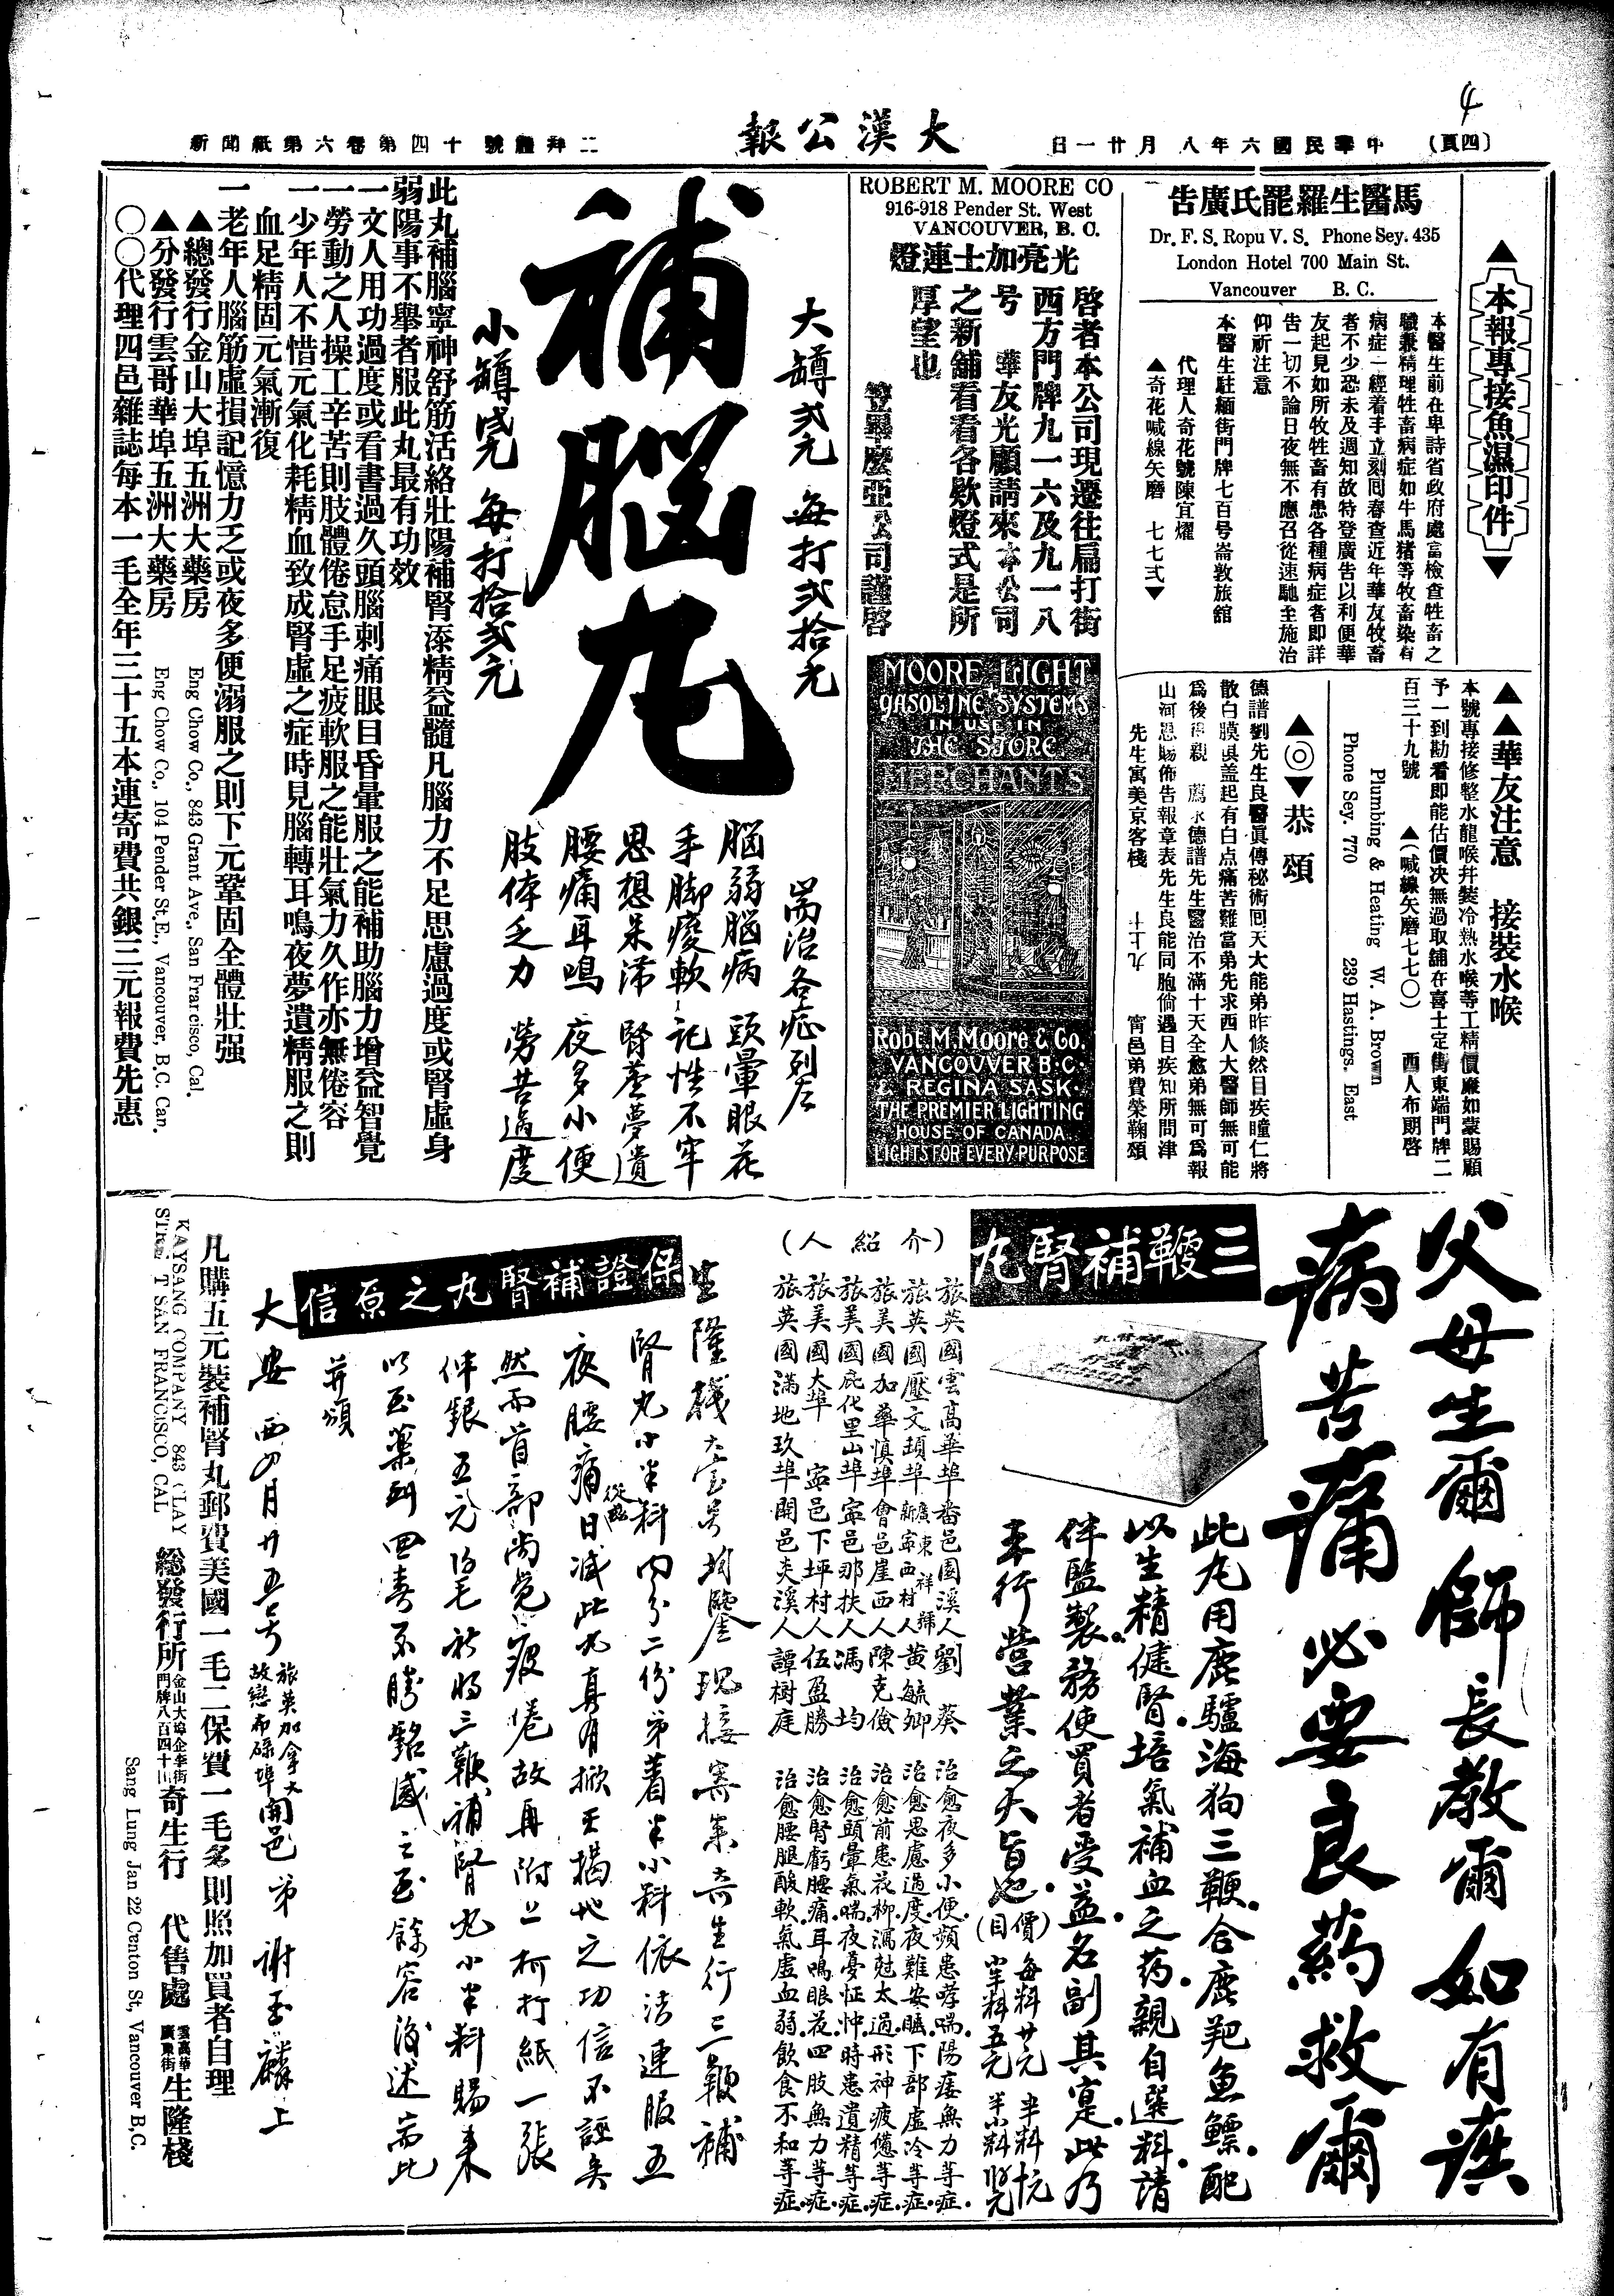 (四頁)
中華民國六年八月廿一日
大漢公報
新聞紙第六卷第四十號禮拜二
4
▲本報專接魚濕印件▼
馬醫生羅罷氏廣告
Dr. F. S. Ropu V. S. Phone Sey. 435
London Hotel 700 Main St.
Vancouver B. C.
本醫生前在卑詩省政府處當檢查牲畜之
職兼精理牲畜病症如牛馬猪等牧畜染有
病症一經着手立刻回春查近年華友牧畜
者不少恐未及週知故特登廣告以利便華
友起見如所牧牲畜有患各種病症者即詳
告一切不論日夜無不應召從速馳至施治
仰祈注意
本醫生駐緬街門牌七百号崙敦旅館
代理人奇花號陳宜燿
▲奇花喊線矢磨 七七弍▼
▲▲華友注意 接裝水喉
本號專接修整水龍喉幷裝冷熱水喉等工精價廉如蒙賜顧
予一到勘看即能估價决無過取舖在喜士定街東端門牌二
百三十九號 ▲(喊線矢磨七七〇) 西人布朗啓
Plumbing & Heating W. A. Brown
Phone Sey. 770 239 Hastings. East
▲◎▼恭頌
德譜劉先生良醫眞傳秘術回天大能弟昨倐然目疾瞳仁將
散白膜與蓋起有白点痛苦難當弟先求西人大醫師無可能
爲後得親 薦永德譜先生醫治不滿十天全愈弟無可爲報
山河恩賜佈告報章表先生良能同胞倘遇目疾知所問津
先生寓美京客棧 甯邑弟費榮鞠頌
ROBERT M. MOORE CO
916-918 Pender St. West
VANCOUVER, B. C.
光亮加士連燈
啓者本公司現遷往扁打街
西方門牌九一六及九一八
号 華友光顧請來本公司
之新舖看看各欵燈式是所
厚望也
笠畢麼亞公司謹啓
MOORE LIGHT
GASOLINE SYSTEMS
IN USE IN
THE STORE
MERCHANTS
Robt. M. Moore & Co.
VANCOUVER B.C.
REGINA SASK.
THE PREMIER LIGHTING
HOUSE OF CANADA
LIGHTS FOR EVERY PURPOSE
大罇弍元 每打弍拾元
補腦丸
小罇壹元 每打拾弍元
耑治各症列左
腦弱腦病 頭暈眼花
手脚痠軟 記性不牢
思想呆滯 腎虧夢遺
腰痛耳鳴 夜多小便
肢体乏力 勞苦過度
此丸補腦寧神舒筋活絡壯陽補腎添精益髓凡腦力不足思慮過度或腎虛身
弱陽事不舉者服此丸最有功效
一文人用功過度或看書過久頭腦刺痛眼目昏暈服之能補助腦力增益智覺
一勞動之人操工辛苦則肢體倦怠手足疲軟服之能壯氣力久作亦無倦容
一少年人不惜元氣化耗精血致成腎虛之症時見腦轉耳鳴夜夢遺精服之則
血足精固元氣漸復
一老年人腦筋虛損記憶力乏或夜多便溺服之則下元鞏固全體壯强
▲總發行金山大埠五洲大藥房
Eng Chow Co., 843 Grant Ave., San Francisco, Cal.
▲分發行雲哥華埠五洲大藥房
Eng Chow Co., 104 Pender St. E., Vancouver, B.C. Can.
〇〇代理四邑雜誌每本一毛全年三十五本連寄費共銀三元報費先惠
父母生爾 師長教爾 如有疾
病苦痛 必要良葯救爾
三鞭補腎丸
此丸用鹿驢海狗三鞭合鹿羓魚鰾配
以生精健腎培氣補血之葯親自選料請
伴監製務使買者受益名副其寔此乃
本行營業之大旨也
(價目) 每料廿元 半料十元
小半料五元
(介紹人)
旅英國雲高華埠番邑園溪人劉葵 治愈夜多小便頻患哮喘陽痿無力等症
旅英國壓文頓埠廣東祥號新寧西村人黃毓卿 治愈思慮過度夜難安睡下部虛冷等症
旅美國加華慎埠會邑崖西人陳克儉 治愈前患花柳瀉尅太過形神疲憊等症
旅美國庇化里山埠寧邑那扶人馮均 治愈頭暈氣喘夜憂怔忡時患遺精等症
旅美國大埠 寧邑下坪村人伍盈勝 治愈腎虧腰痛耳鳴眼花四肢無力等症
旅英國滿地玖埠開邑夾溪人譚樹庭 治愈腰腿酸軟氣虛血弱飲食不和等症
保證補腎丸之原信
生隆棧大寳号均鑒現接寄來奇生行三鞭補
腎丸小半料內分二份弟着半小料依法連服五
夜腰痛從此日減此丸真有掀天揭地之功信不誣矣
然而首部尚覺疲倦故再附上柯打紙一張
伴銀五元 祈將三鞭補腎丸小半料賜來
以至藥到回春不勝銘感之至餘容後述耑此
幷頌
大安 西四月廿五号 旅英加拿大故巒布碌埠開邑弟謝玉麟上
凡購五元裝補腎丸郵費美國一毛二保費一毛多則照加買者自理
KAYSANG COMPANY 843 CLAY
STREET SAN FRANCISCO, CAL
總發行所 金山大埠企李街門牌八百四十三 奇生行 代售處 雲高華廣東街 生隆棧
Sang Lung Jan 22 Centon St, Vancouver B,C.